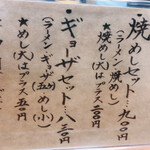 焼めしセット…九〇〇円
(ラーメン・焼めし)
★焼めし(大)はプラス一〇〇円
・ギョーザセット…八三〇円
(ラーメン・ギョーザ・めし(小))
★めし(大)はプラス五〇円